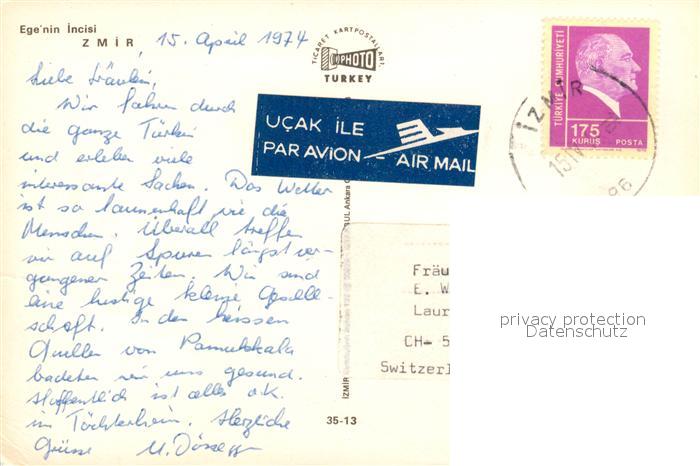 Ege'nin İncisi
ZMİR, 15. April 1974
Liebe Fräulein,
Wir fahren durch
die ganze Türkei
und erleben viele
interessante Sachen. Das Wetter
ist so launenhaft wie die
Menschen. Überall treffen
wir auf Spuren längst ver-
gangener Zeiten. Wir sind
eine lustige kleine Gesell-
schaft. In den heissen
Quellen von Pamukkala
badeten wir uns gesund.
Hoffentlich ist alles o.k.
im Töchterheim. Herzliche
Grüsse
TİCARET KARTPOSTALLARI
PHOTO
TURKEY
UÇAK İLE
PAR AVION - AIR MAIL
TÜRKİYE CUMHURİYETİ
175
KURUŞ POSTA
İZMİR
Fräu
E. W
Laur
CH- 5
Switzerl
35-13
privacy protection
Datenschutz